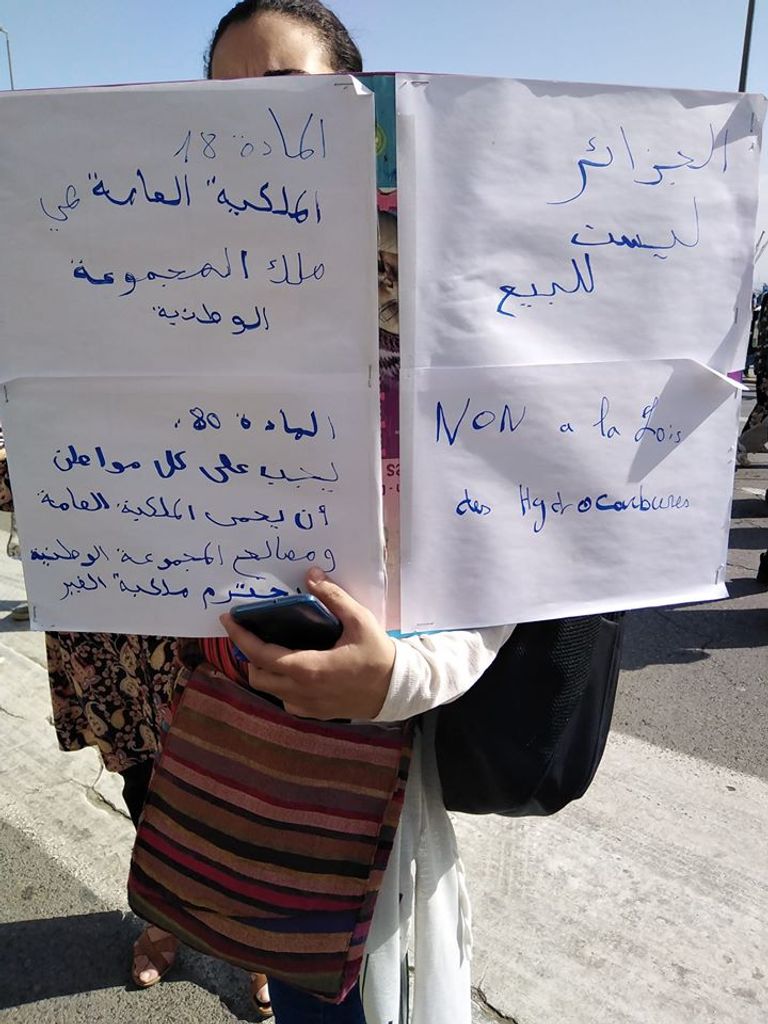 المادة 18
الملكية العامة هي
ملك المجموعة
الوطنية
المادة 80.
يجب على كل مواطن
أن يحمى الملكية العامة
ومصالح المجموعة الوطنية
يحترم ملكية الغير
الجزائر
ليست
للبيع
NON a la Lois
des Hydrocarbures